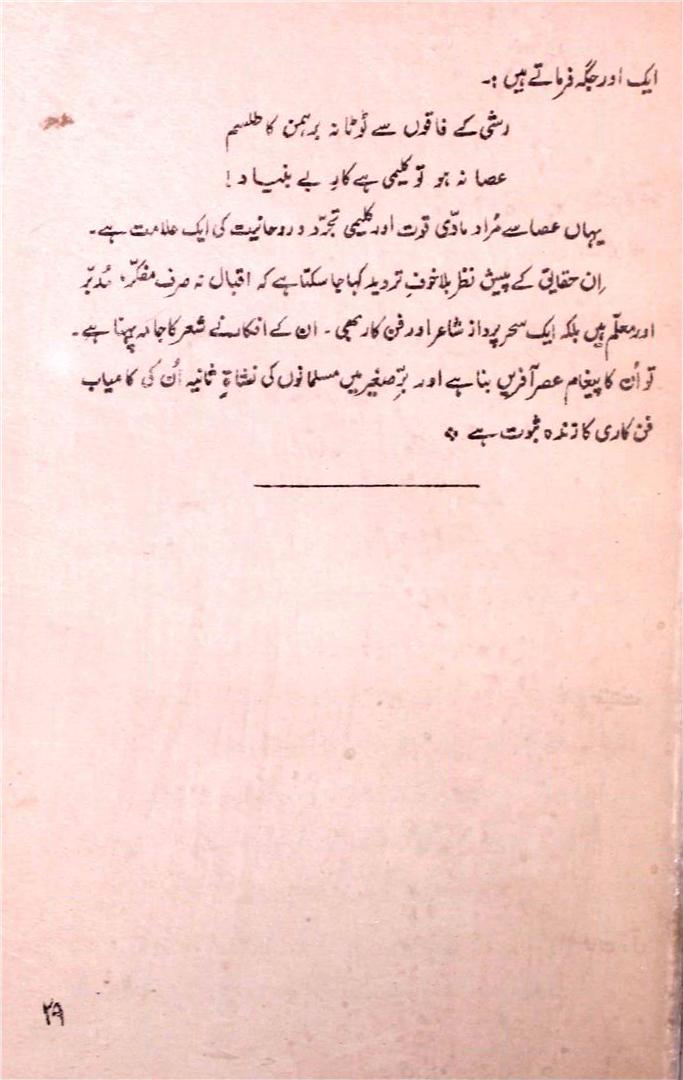 ایک اور جگہ فرماتے ہیں :۔
رشی کے فاقوں سے ٹوٹا نہ برہمن کا طلسم
عصا نہ ہو تو کلیمی ہے کارِ بے بنیاد !
یہاں عصا سے مُراد مادّی قوت اور کلیمی تجرّد و روحانیت کی ایک علامت ہے۔
اِن حقایق کے پیش نظر بلا خوفِ تردید کہا جا سکتا ہے کہ اقبال نہ صرف مفکرّ، مُدبّر
اور معلّم ہیں بلکہ ایک سحر پرداز شاعر اور فن کار بھی۔ ان کے افکار نے شعر کا جامہ پہنا ہے۔
تو اُن کا پیغام عصر آفریں بنا ہے اور برِّصغیر میں مسلمانوں کی نشاۃِ ثانیہ اُن کی کامیاب
فن کاری کا زندہ ثبوت ہے ٭
۲۹